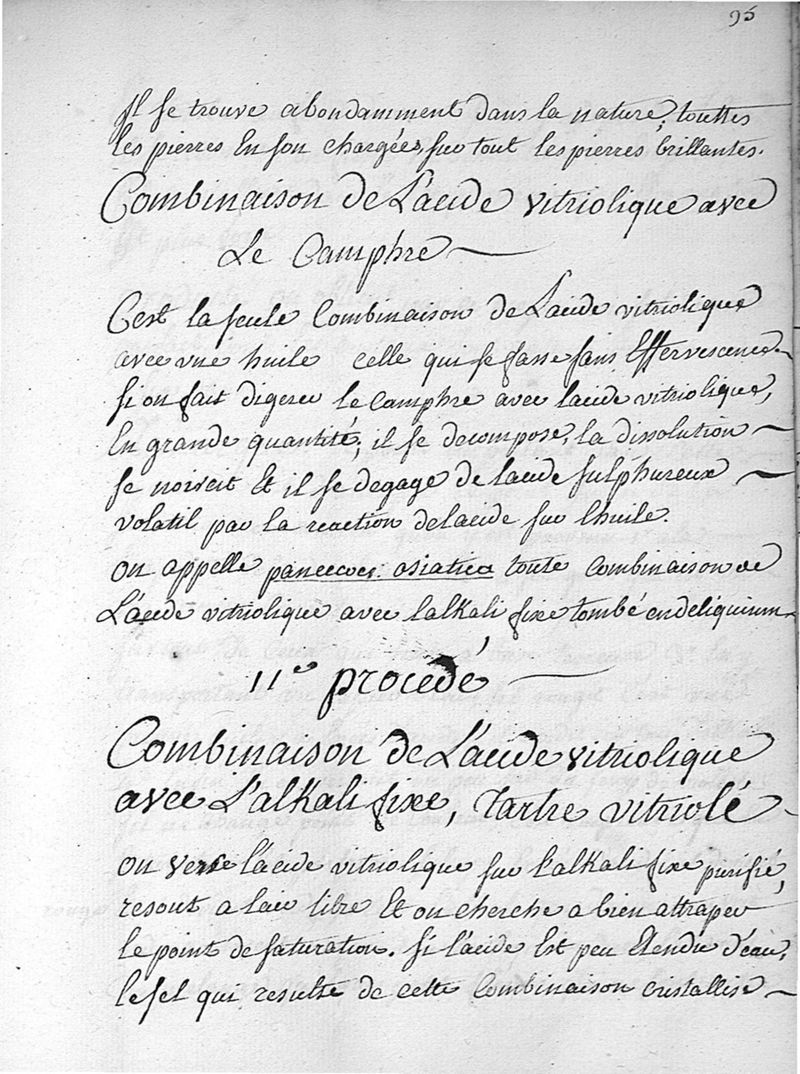 95
Il se trouve abondamment dans la nature, touttes
les pierres en son chargées, sur tout les pierres brillantes.
Combinaison de L'acide vitriolique avec
Le Camphre
C'est la seule Combinaison de L'acide vitriolique
avec une huile celle qui se fasse sans Effervescence
si on fait digerer le Camphre avec l'acide vitriolique,
En grande quantité, il se decompose, la dissolution
se noircit Et il se degage de l'acide sulphureux
volatil par la reaction de lacide sur l'huile.
on appelle asiatica toute Combinaison de
L'acide vitriolique avec l'alkali fixe tombé en deliquium
11e procedé
Combinaison de L'acide vitriolique
avec L'alkali fixe, Tartre vitriolé
on verse l'acide vitriolique sur l'alkali fixe purifié,
resout a l'air libre Et on cherche a bien attraper
le point de saturation. si l'acide Est peu Etendu d'eau,
le sel qui resulte de cette Combinaison cristallise